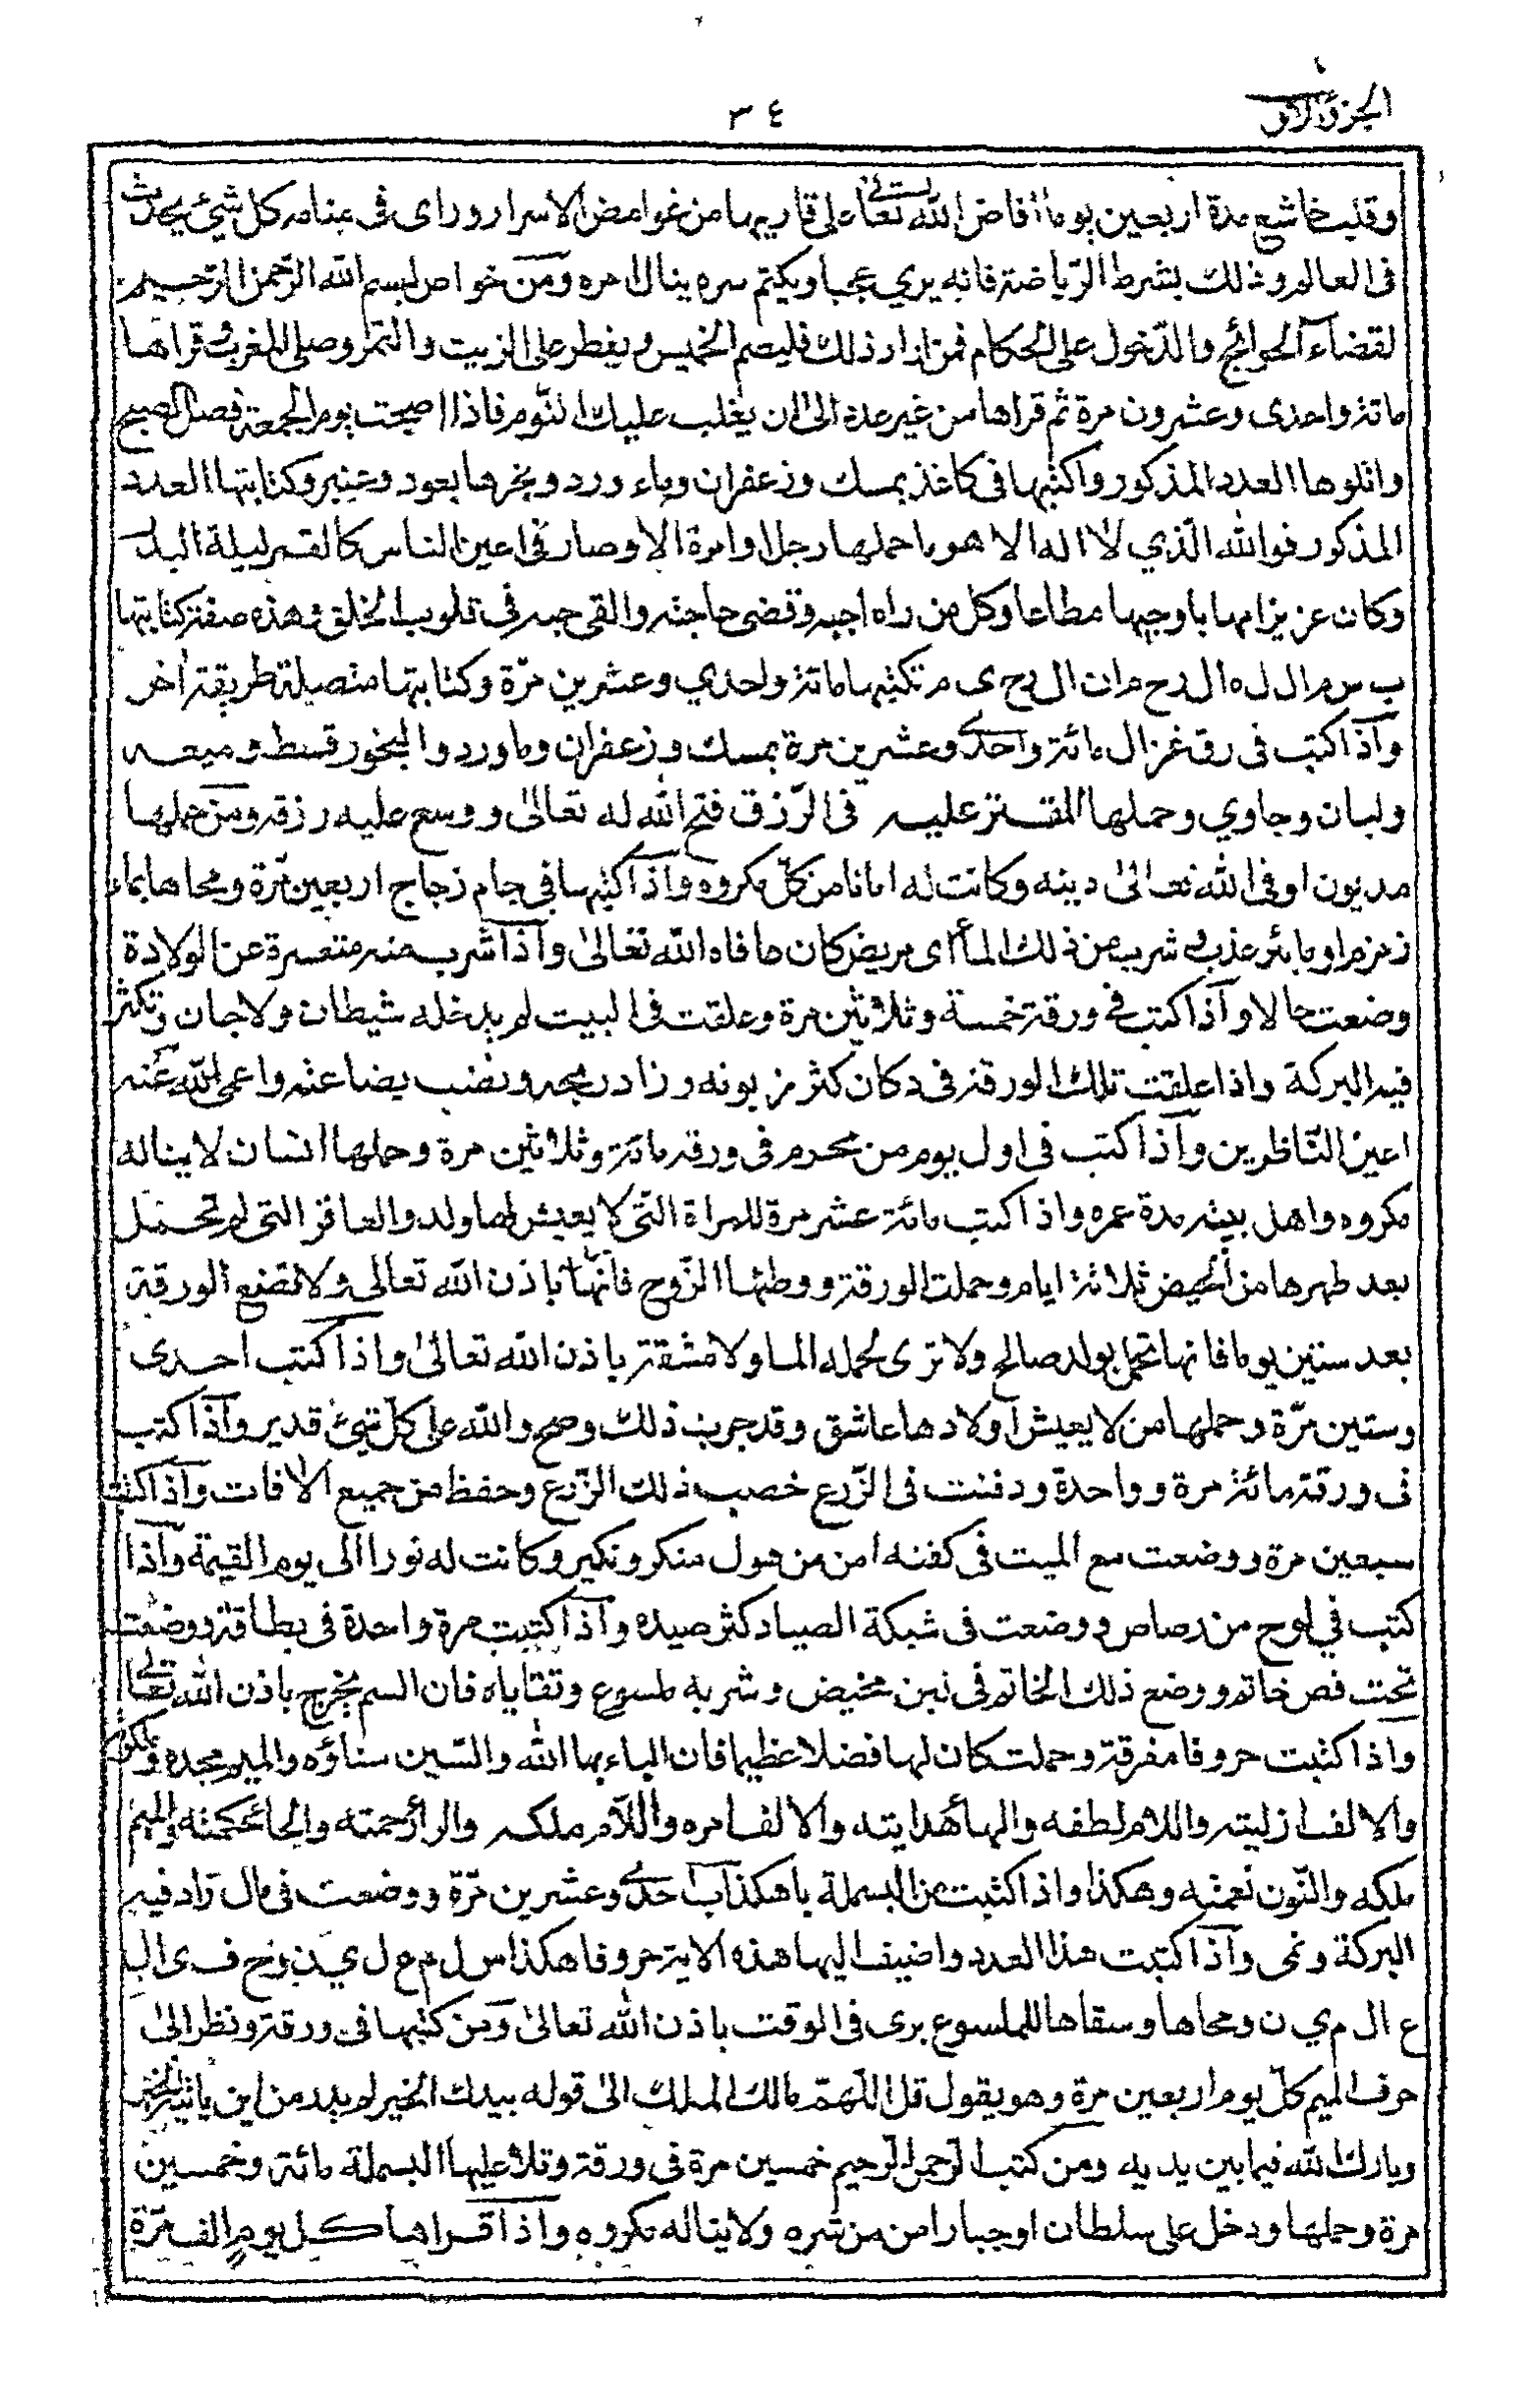 الجزء الاول
٣٤
وقلب خاشع مدة اربعين يوما افاض الله تعالى على قاريها من غوامض الاسرار وراى فى منامه كل شيئ يحدث
فى العالم وذلك بشرط الرّياضة فانه يري عجبا ويكتم سره ينال امره ومن خواص بسم الله الرّحمن الرّحيم
لقضاء الحوائج والدّخول على الحكام فمن اراد ذلك فليصم الخميس ويفطر على الزيت والتمر وصلى المغرب وقراها
مائة واحدى وعشرون مرة ثم قراها من غير عدة الى ان يغلب عليك النّوم فاذا اصبحت يوم الجمعة فصل الصبح
واتلوها العدد المذكور واكتبها فى كاغذ بمسك وزعفران وماء ورد وبخرها بعود وعنبر وكتابتها العدد
المذكور فوالله الّذي لا اله الا هو ما حملها رجل او امرة الا وصار فى اعين الناس كالقمر ليلة البدر
وكان عزيزا مهابا وجيها مطاعا وكل من راه احبه وقضى حاجته والقى حبه فى قلوب الخلق وهذه صفة كتابتها
ب س م ا ل ل ه ا ل ر ح م ا ن ا ل ر ح ى م تكتبها مائة واحدي وعشرين مرّة وكتابتها متصيلة طريقة اخر
وآذا كتب فى رق غزال مائة واحدى وعشرين مرة بمسك وزعفران وماورد والبخور قسط وميعه
ولبان وجاوي وحملها المقتر عليه فى الرّزق فتح الله له تعالى ووسع عليه رزقه ومن حملها
مديون اوفى الله تعالى دينه وكانت له امانا من كلّ مكروه وآذا كتبها فى جام زجاج اربعين مرّة ومحاها بماء
زمزم او ماء بئر عذب وشرب من ذلك الماء اى مريض كان عافاه الله تعالى وآذا شرب منه متعسرة عن الولادة
وضعت حالا وآذا كتب فى ورقة خمسة وثلاثين مرة وعلقت فى البيت لم يدخله شيطان ولا جان وتكثر
فيه البركة واذا علقت تلك الورقة فى دكان كثر زبونه وزاد ربحه ونضب بضاعته واعمى الله عنه
اعين النّاظرين وآذا كتب فى اول يوم من محرم فى ورقة مائة وثلاثين مرة وحملها انسان لا يناله
مكروه واهل بيته مدة عمره واذا كتب مائة عشر مرة للمراة التّى لا يعيش لها ولد والعاقر التى لم تحمل
بعد طهرها من الحيض ثلاثة ايام وحملت الورقة ووطئها الزّوج فانها باذن الله تعالى ولا تضع الورقة
بعد ستين يوما فانها تحمل بولد صالح ولا ترى لحمله الما ولا مشقة باذن الله تعالى واذا كتب احدى
وستين مرّة وحملها من لا يعيش اولادها عاشق وقد جرب ذلك وصح والله على كلّ شيئ قدير وآذا كتب
فى ورقة مائة مرة وواحدة ودفنت فى الزّرع خصب ذلك الزّرع وحفظ من جميع الافات وآذا كتب
سبعين مرة ووضعت مع الميت فى كفنه امن من هول منكر ونكير وكانت له نورا الى يوم القيمة وآذا
كتب في لوح من رصاص ووضعت فى شبكة الصياد كثر صيده وآذا كتبت مرة واحدة فى بطاقة ووضعت
تحت فص خاتم ووضع ذلك الخاتم فى لبن مخيض وشربه ملسوع وتقاياه فان السم يخرج باذن الله تعالى
واذا كتبت حروفا مفرقة وحملت كان لها فضلا عظيما فان الباء بها الله والسّين سناؤه والميم مجده
والالف ازليته واللام لطفه والهاء هدايته والالف امره واللّام ملكه والراء رحمته والحاء حكمته والميم
ملكه والنّون نعمته وهكذا واذا كتبت من البسملة با هكذا ب احدى وعشرين مرّة ووضعت فى مال زاد فيه
البركة ونمى وآذا كتبت هذا العدد واضيف اليها هذه الاية حروفا هكذا س ل م ع ل ي ن و ح ف ى ال
ع ا ل م ي ن ومحاها وسقاها للملسوع برى فى الوقت باذن الله تعالى ومن كتبها فى ورقة ونظر الى
حرف الميم كلّ يوم اربعين مرة وهو يقول قل اللّهمّ مالك الملك الى قوله بيدك الخير لم يدر من اين ياتيه الخير
وبارك الله فيما بين يديه ومن كتب الرّحمن الرّحيم خمسين مرة فى ورقة وتلا عليها البسملة مائة وخمسين
مرة وحملها ودخل على سلطان او جبار امن من شره ولا يناله مكروه وآذا قراها كل يوم الف مرّة